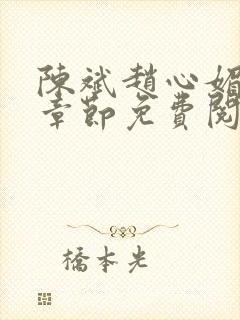 陳斌趙心媚
章節免費閱
橋本光